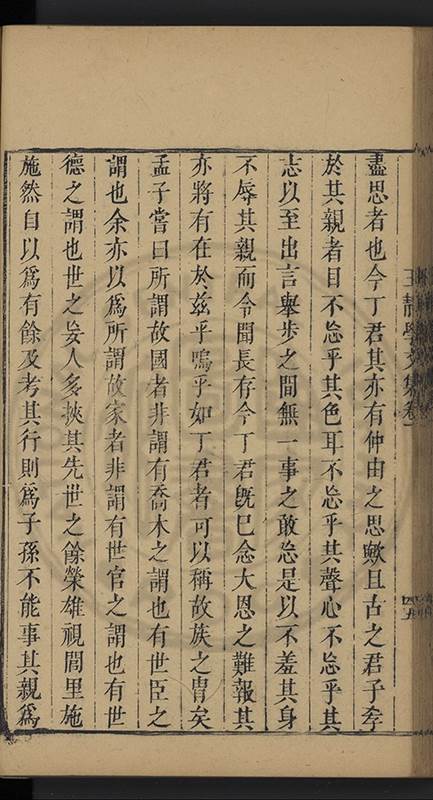 王靜學文集卷
盡思者也今丁君其亦有仲由之思歟且古之君子孝
於其親者目不忘乎其色耳不忘乎其聲心不忘乎其
志以至出言舉步之間無一事之敢忘是以不羞其身
不辱其親而令聞長存今丁君既已念大恩之難報其
亦將有在於茲乎嗚乎如丁君者可以稱故族之冑矣
孟子嘗曰所謂故國者非謂有喬木之謂也有世臣之
謂也余亦以爲所謂故家者非謂有世官之謂也有世
德之謂也世之妄人多挾其先世之餘榮雄視閭里施
施然自以爲有餘及考其行則爲子孫不能事其親爲